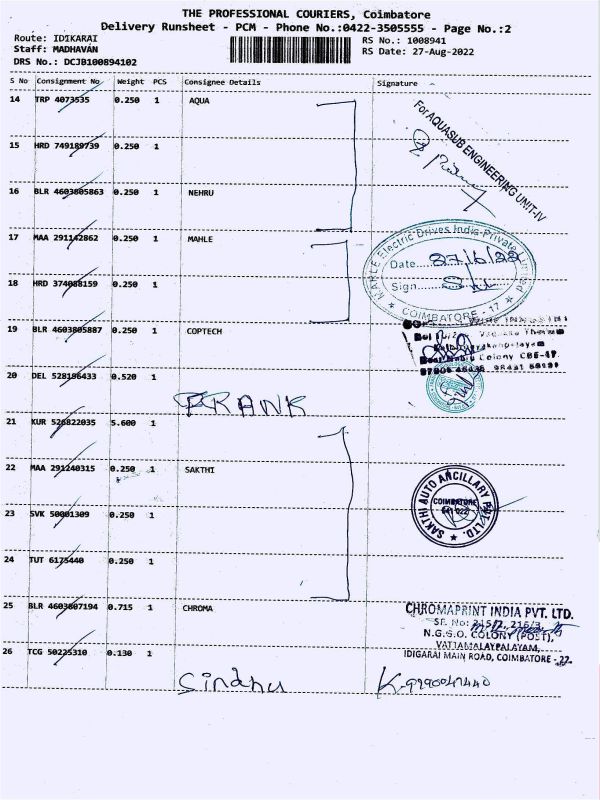 THE PROFESSIONAL COURIERS, Coimbatore
Delivery Runsheet - PCM - Phone No.:0422-3505555 - Page No.:2
Route: IDIKARAI RS No.: 1008941
Staff: MADHAVAN RS Date: 27-Aug-2022
DRS No.: DCJB100894102
S No Consignment No Weight PCS Consignee Details Signature
14 TRP 4073535 0.250 1 AQUA
For AQUASUB ENGINEERING UNIT-IV
15 HRD 749189739 0.250 1
16 BLR 4603805863 0.250 1 NEHRU
17 MAA 291142862 0.250 1 MAHLE
MAHLE Electric Drives India Private Limited
Date 27/6/22
Sign
COIMBATORE - 17
18 HRD 374088159 0.250 1
19 BLR 4603805887 0.250 1 COPTECH
Colony CBE-17.
20 DEL 528196433 0.520 1
FRANK
21 KUR 526822035 5.600 1
22 MAA 291240315 0.250 1 SAKTHI
SAKTHI AUTO ANCILLARY PVT. LTD.
COIMBATORE
641 022
23 SVK 50001309 0.250 1
24 TUT 6175440 0.250 1
25 BLR 4603807194 0.715 1 CHROMA
CHROMAPRINT INDIA PVT. LTD.
SF. No: 215/2, 216/3,
N.G.G.O. COLONY (POST),
VATTAMALAYPALAYAM,
IDIGARAI MAIN ROAD, COIMBATORE - 22.
26 TCG 50225310 0.130 1
Sindhu K-9290047440